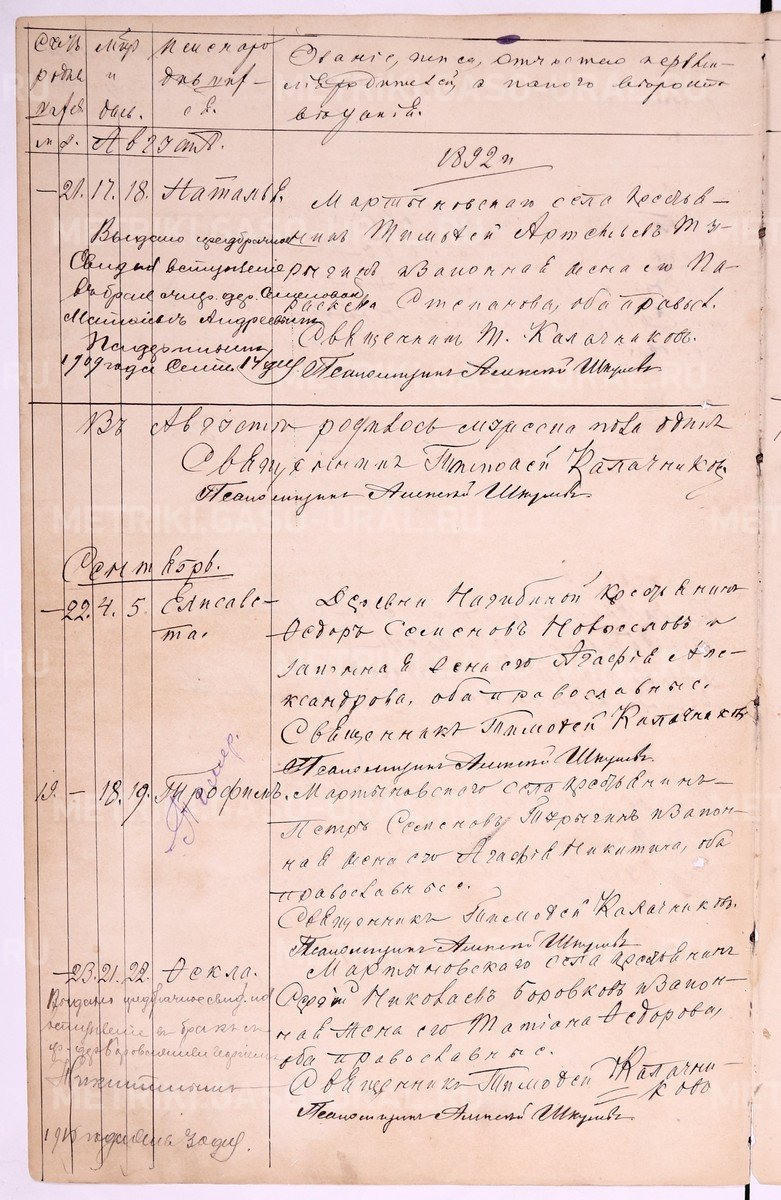 Счетъ Мѣс. Имена ро
родив и
Званіе, имя, отчество
и какого вѣроис
Августъ.
1892 г.
— 21. 17. 18. Наталья.
Мартыновскаго села крестьян-
инъ Тимоѳей Артемьевъ Ту-
рыгинъ и законная жена его Па-
раскева Степанова, оба правосл.
Священникъ Т. Калачниковъ.
Псаломщикъ Алексѣй Шкулевъ
Выдано предбрачное
Свид. на вступленіе
въ бракъ
Матвѣемъ Андреевымъ
1909 года Сент. 14 дня.
Въ Августѣ родилось женска пола одинъ
Священникъ Тимоѳей Калачниковъ.
Псаломщикъ Алексѣй Шкулевъ
Сентябрь.
— 22. 4. 5. Елисаве-
та.
Деревни Нагибиной крестьянинъ
Ѳедоръ Семеновъ Новоселовъ и
законная жена его Агафія Але-
ксандрова, оба православные.
Священникъ Тимоѳей Калачниковъ
Псаломщикъ Алексѣй Шкулевъ
Помер.
19. — 18. 19. Трофимъ.
Мартыновскаго села крестьянинъ
Петръ Семеновъ Турыгинъ и закон-
ная жена его Агафія Никитина, оба
православные.
Священникъ Тимоѳей Калачниковъ.
Псаломщикъ Алексѣй Шкулевъ
— 23. 21. 22. Ѳекла.
Мартыновскаго села крестьянинъ
Сергѣй Николаевъ Боровковъ и закон-
ная жена его Татіана Ѳедорова,
оба православные.
Священникъ Тимоѳей Калачни-
ковъ
Псаломщикъ Алексѣй Шкулевъ
Выдано предбрачное свид. на
вступленіе въ бракъ съ
Никитинымъ